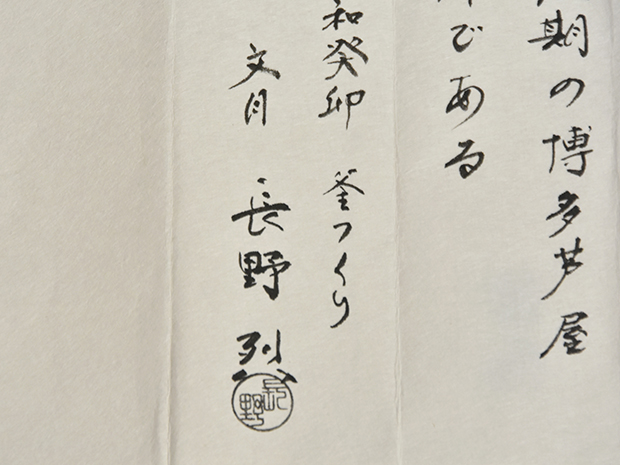 期の博多芦屋
である
和癸卯 釜つくり
文月 長野 烈
長野